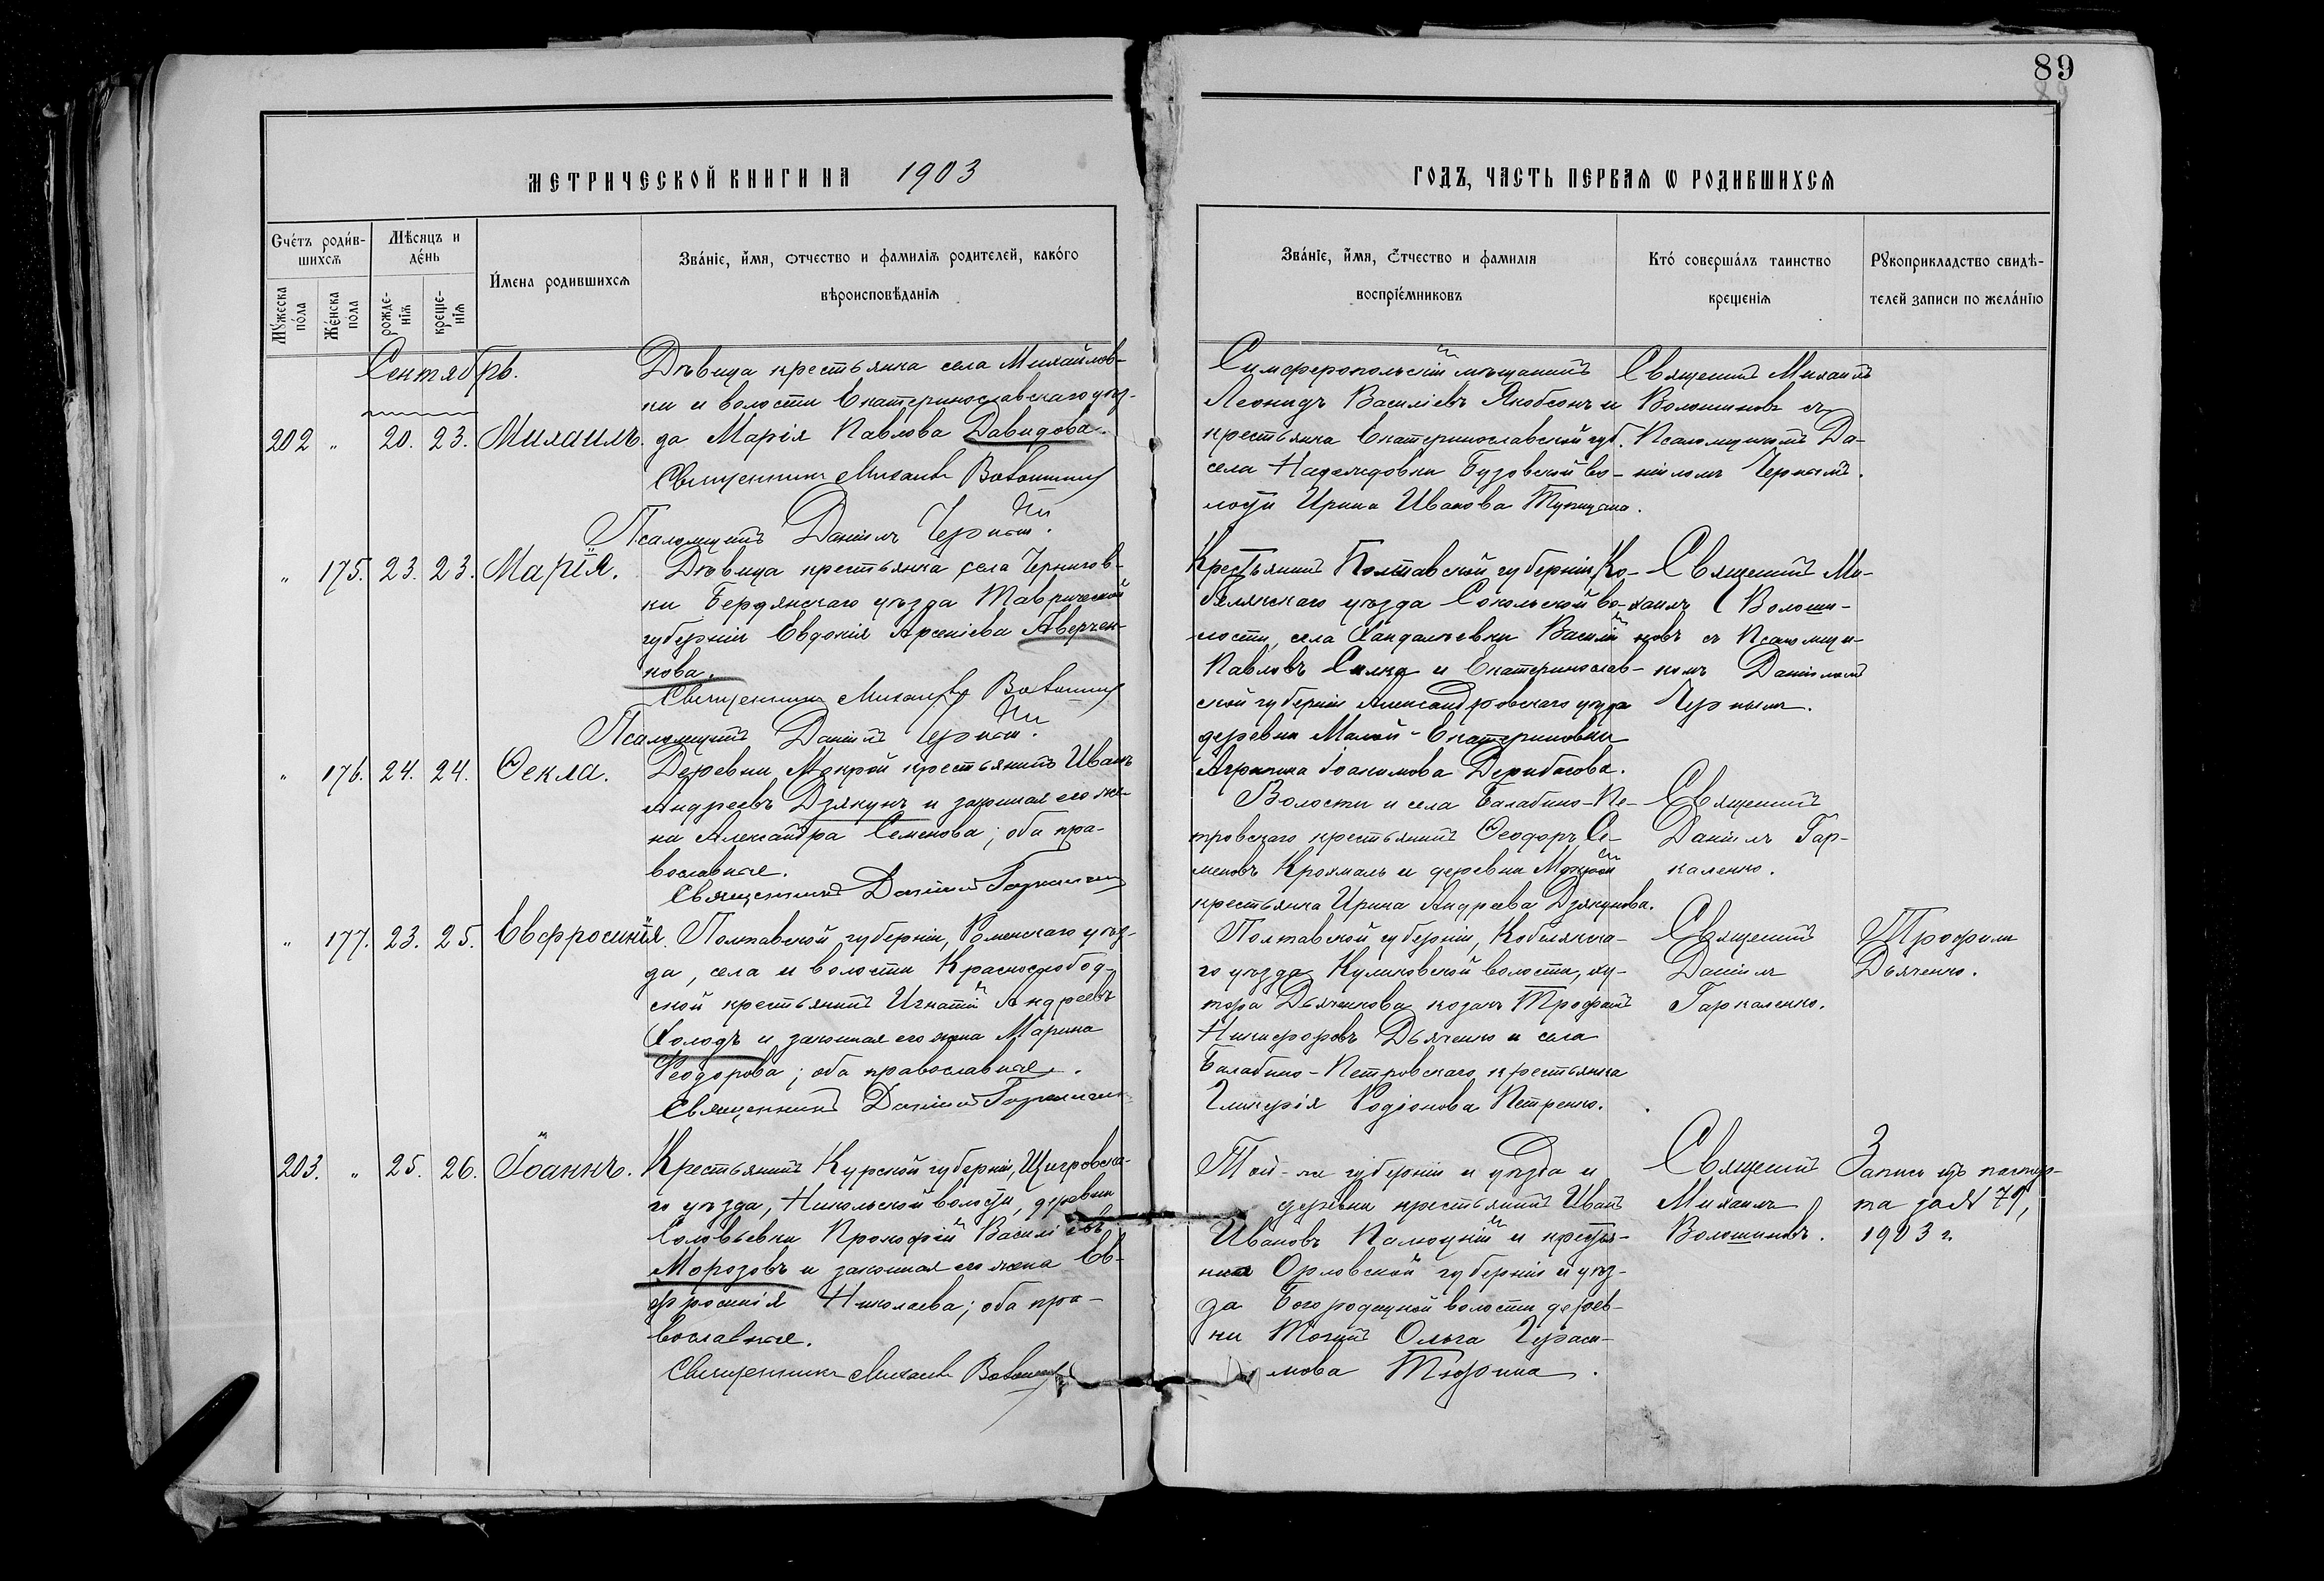 89
МЕТРИЧЕСКОЙ КНИГИ НА 1903
ГОДЪ, ЧАСТЬ ПЕРВАЯ Ѡ РОДИВШИХСЯ
Счетъ родив-
шихся
Мужеска пола
Женска пола
Мѣсяцъ и
день
рожде-
нія
креще-
нія
Имена родившихся
Званіе, имя, отчество и фамилія родителей, какого
вѣроисповѣданія
Званіе, имя, отчество и фамилія
воспріемниковъ
Кто совершалъ таинство
крещенія
Рукоприкладство свидѣ-
телей записи по желанію
Сентябрь.
202 " 20. 23. Михаилъ.
Дѣвица крестьянка села Михайлов-
ки и волости Екатеринославскаго уѣз-
да Марія Павлова Давидова.
Священникъ Михаилъ Волошинъ
Псаломщикъ Даніилъ Черный.
Симферопольскій мѣщанинъ
Леонидъ Василіевъ Якобсонъ и
крестьянка Екатеринославской губ.
села Надеждовки Бузовской во-
лости Ирина Иванова
Священникъ Михаилъ
Волошиновъ съ
Псаломщикомъ Да-
ніиломъ Чернымъ.
" 175. 23. 23. Марія.
Дѣвица крестьянка села Чернигов-
ки Бердянскаго уѣзда Таврической
губерніи Евдокія Арсеніева Аверчен-
кова.
Священникъ Михаилъ Волошинъ
Псаломщикъ Даніилъ Черный.
Крестьянинъ Полтавской губерніи, Ко-
белякскаго уѣзда Сокольской во-
лости, села Хандалѣевки Василій
Павловъ и Екатеринослав-
ской губерніи Александровскаго уѣзда
деревни Малой-Екатериновки
Агрипина Іоакимова Дерибасова.
Священникъ Ми-
хаилъ Волоши-
новъ съ Псаломщи-
комъ Даніиломъ
Чернымъ.
" 176. 24. 24. Ѳекла.
Деревни Мокрой крестьянинъ Иванъ
Андреевъ Дзякунъ и законная его же-
на Александра Семенова; оба пра-
вославные.
Священникъ Даніилъ Гаркаленко
Волости и села Балабино-Пе-
тровскаго крестьянинъ Ѳеодоръ Се-
меновъ Крохмаль и деревни Мокрой
крестьянка Ирина Андреева Дзякунова.
Священникъ
Даніилъ Гар-
каленко.
" 177. 23. 25. Евфросинія.
Полтавской губерніи, Роменскаго уѣз-
да, села и волости Краснослобод-
ской крестьянинъ Игнатій Андреевъ
Холодъ и законная его жена Марина
Ѳеодорова; оба православные.
Священникъ Даніилъ Гаркаленко
Полтавской губерніи, Кобелякска-
го уѣзда Куликовской волости, ху-
тора Дьяченкова козакъ Трофимъ
Никифоровъ Дьяченко и села
Балабино-Петровскаго крестьянка
Гликерія Родіонова Петренко.
Священникъ
Даніилъ
Гаркаленко.
Трофимъ
Дьяченко.
203. " 25. 26. Іоаннъ.
Крестьянинъ Курской губерніи, Щигровска-
го уѣзда, Никольской волости, деревни
Соловьевки Прокофій Василіевъ
Морозовъ и законная его жена Ев-
фросинія Николаева; оба пра-
вославные.
Священникъ Михаилъ Волошинъ
Той-же губерніи и уѣзда и
деревни крестьянинъ Иванъ
Ивановъ и крестья-
нка Орловской губерніи и уѣз-
да Богородицкой волости дерев-
ни Ольга Гераси-
мова Тюрина.
Священникъ
Михаилъ
Волошиновъ.
Запись изъ паспор-
та за № 79,
1903 г.